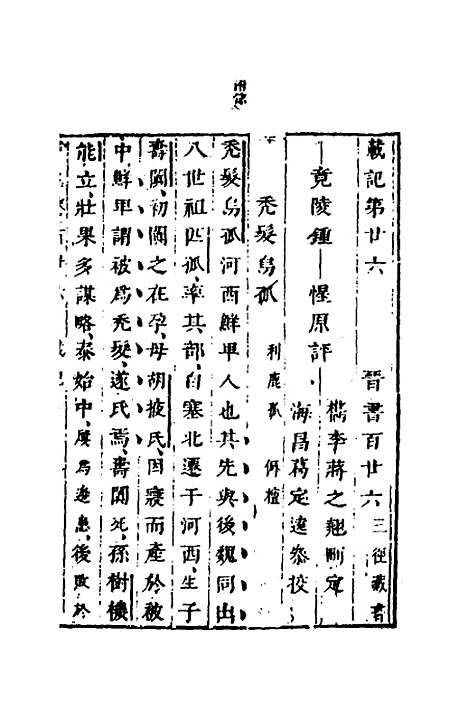 載記第廿六　晉書百廿六　三徑藏書
竟陵鍾惺原評
檇李蔣之翹刪定
海昌葛定遠參校
禿髮烏孤　利鹿孤　傉檀
禿髮烏孤河西鮮卑人也其先與後魏同出
八世祖匹孤、率其部、自塞北遷于河西、生子
壽闐、初闐之在孕、母胡掖氏、因寢而產於被
中、鮮卑謂被爲禿髮、遂氏焉、壽闐死、孫樹機
能立、壯果多謀略、泰始中、屢爲邊患、後敗於